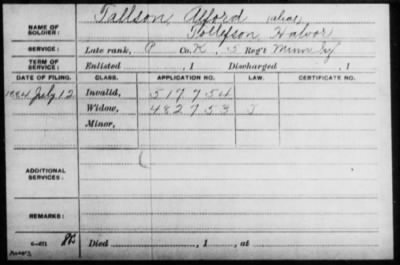 NAME OF SOLDIER: Tallson, Alford (alias)
Tollefson, Halvor
SERVICE: Late rank, P Co. K, 5 Reg't Minn Inf
TERM OF SERVICE: Enlisted , 1 Discharged , 1
DATE OF FILING. CLASS. APPLICATION NO. LAW. CERTIFICATE NO.
1884 July 12 Invalid, 517754
Widow, 482753
Minor,
ADDITIONAL SERVICES:
REMARKS:
Died , 1 , at